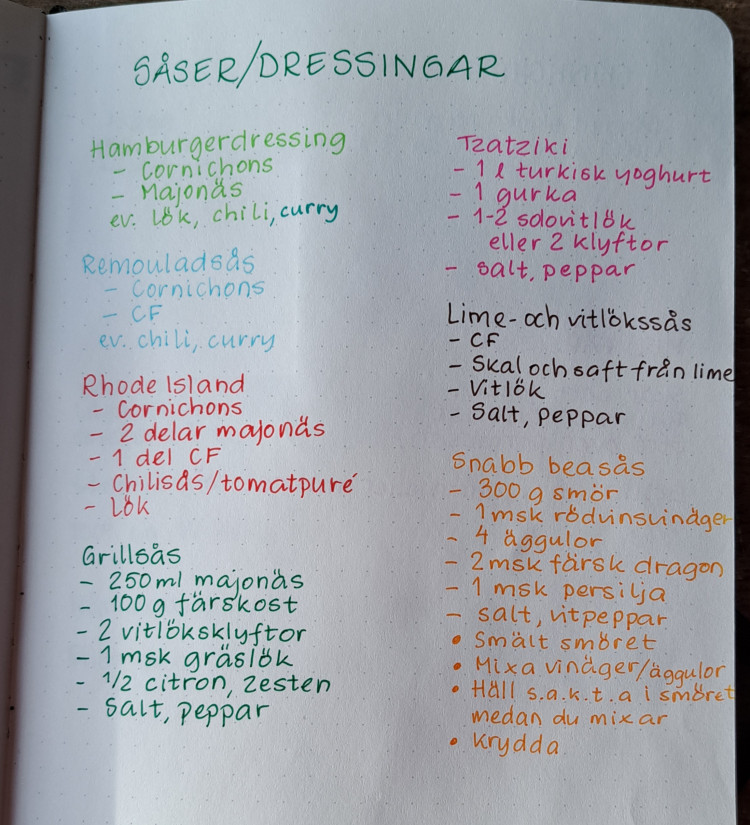 SÅSER/DRESSINGAR
Hamburgerdressing
- Cornichons
- Majonäs
ev. lök, chili, curry
Remouladsås
- Cornichons
- CF
ev. chili, curry
Rhode Island
- Cornichons
- 2 delar majonäs
- 1 del CF
- Chilisås/tomatpuré
- Lök
Grillsås
- 250 ml majonäs
- 100 g färskost
- 2 vitlöksklyftor
- 1 msk gräslök
- 1/2 citron, zesten
- Salt, peppar
Tzatziki
- 1 l turkisk yoghurt
- 1 gurka
- 1-2 solovitlök
eller 2 klyftor
- salt, peppar
Lime- och vitlökssås
- CF
- Skal och saft från lime
- Vitlök
- Salt, peppar
Snabb beasås
- 300 g smör
- 1 msk rödvinsvinäger
- 4 äggulor
- 2 msk färsk dragon
- 1 msk persilja
- salt, vitpeppar
• Smält smöret
• Mixa vinäger/äggulor
• Häll s.a.k.t.a i smöret
medan du mixar
• Krydda